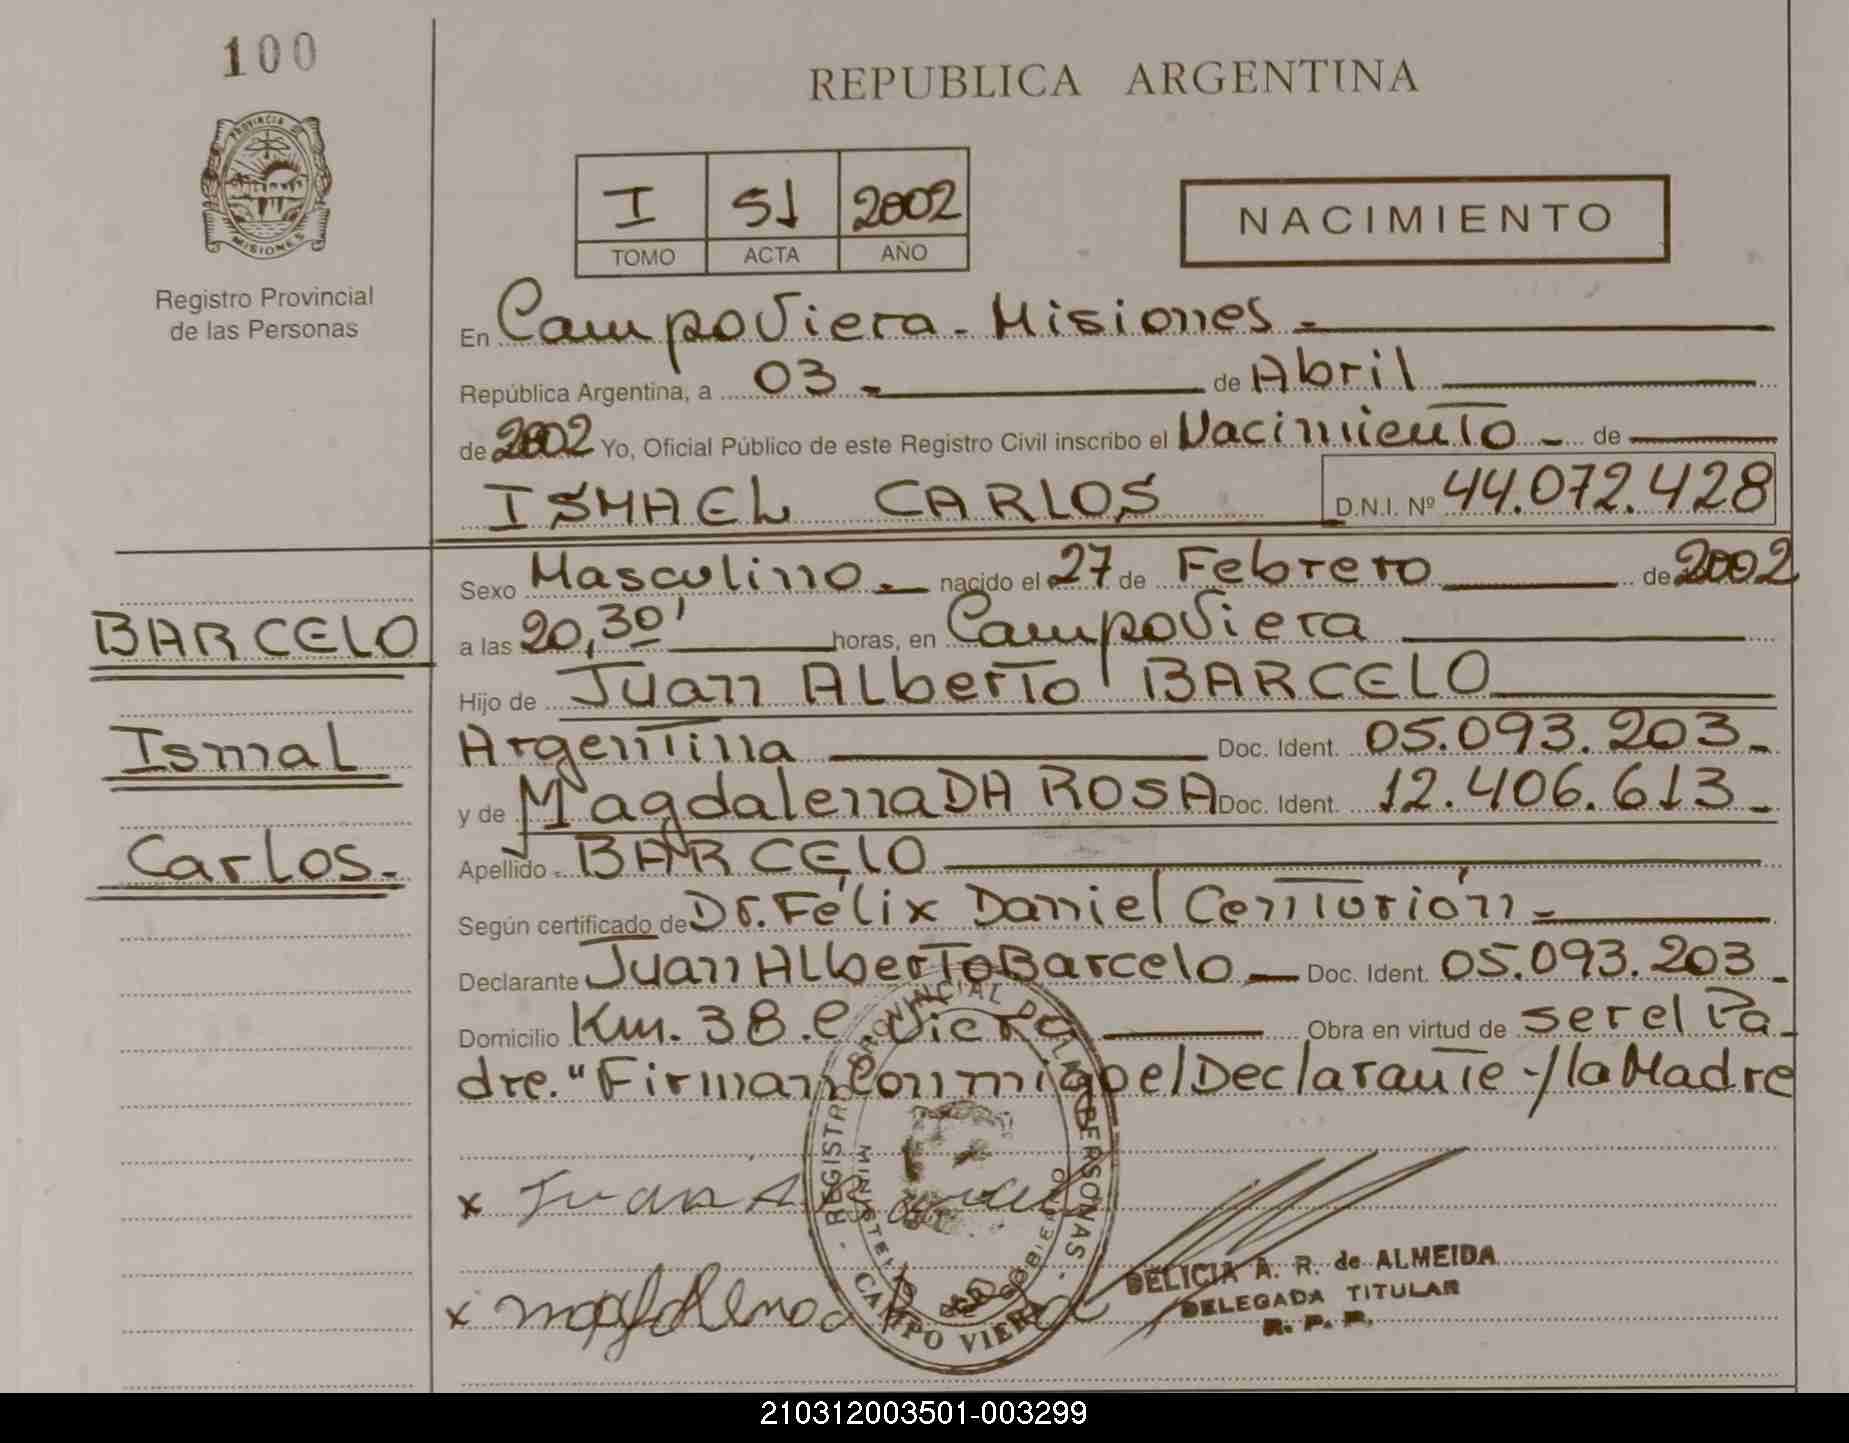 100
REPUBLICA ARGENTINA
PROVINCIA DE
MISIONES
Registro Provincial
de las Personas
I 51 2002
TOMO ACTA AÑO
NACIMIENTO
En Campo Viera - Misiones -
República Argentina, a 03 - de Abril
de 2002 Yo, Oficial Público de este Registro Civil inscribo el Nacimiento - de
ISMAEL CARLOS D.N.I. Nº 44.072.428
Sexo Masculino - nacido el 27 de Febrero de 2002
a las 20,30' horas, en Campo Viera
Hijo de Juan Alberto BARCELO
Argentina Doc. Ident. 05.093.203-
y de Magdalena DA ROSA Doc. Ident. 12.406.613-
Apellido - BARCELO
Según certificado de Dr. Félix Daniel Centurión -
Declarante Juan Alberto Barcelo - Doc. Ident. 05.093.203-
Domicilio Km. 38. C. Viera Obra en virtud de ser el Pa-
dre." Firman Conmigo el Declarante -/ la Madre
BARCELO
Ismal
Carlos.-
REGISTRO PROVINCIAL DE LAS PERSONAS
MINISTERIO GOBIERNO
CAMPO VIERA
x Juan A Barcelo
x
DELICIA A. R. de ALMEIDA
DELEGADA TITULAR
R. P. P.
210312003501-003299